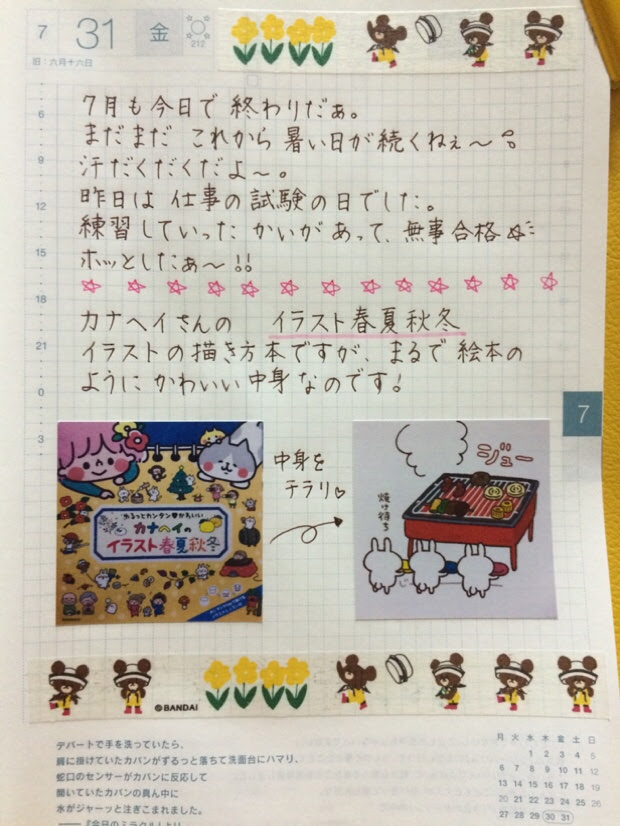 7 31 金 212
旧：六月十六日
7月も今日で 終わりだぁ。
まだまだ これから 暑い日が続くねぇ〜
汗だくだくだよ〜。
昨日は 仕事の試験の日でした。
練習していった かいがあって、無事合格
ホッとしたぁ〜!!
カナヘイさんの イラスト春夏秋冬
イラストの描き方本ですが、まるで絵本の
ようにかわいい中身なのです!
6
9
12
15
18
21
0
3
7
中身を
チラリ♡
カナヘイの
イラスト春夏秋冬
ジュー
焼け待ち
©BANDAI
デパートで手を洗っていたら、
肩に掛けていたカバンがずるっと落ちて洗面台にハマリ、
蛇口のセンサーがカバンに反応して
開いていたカバンの真ん中に
水がジャーッと注ぎこまれました。
――『今日のミラクル』より
月 火 水 木 金 土 日
1 2 3 4 5
6 7 8 9 10 11 12
13 14 15 16 17 18 19
20 21 22 23 24 25 26
27 28 29 30 31